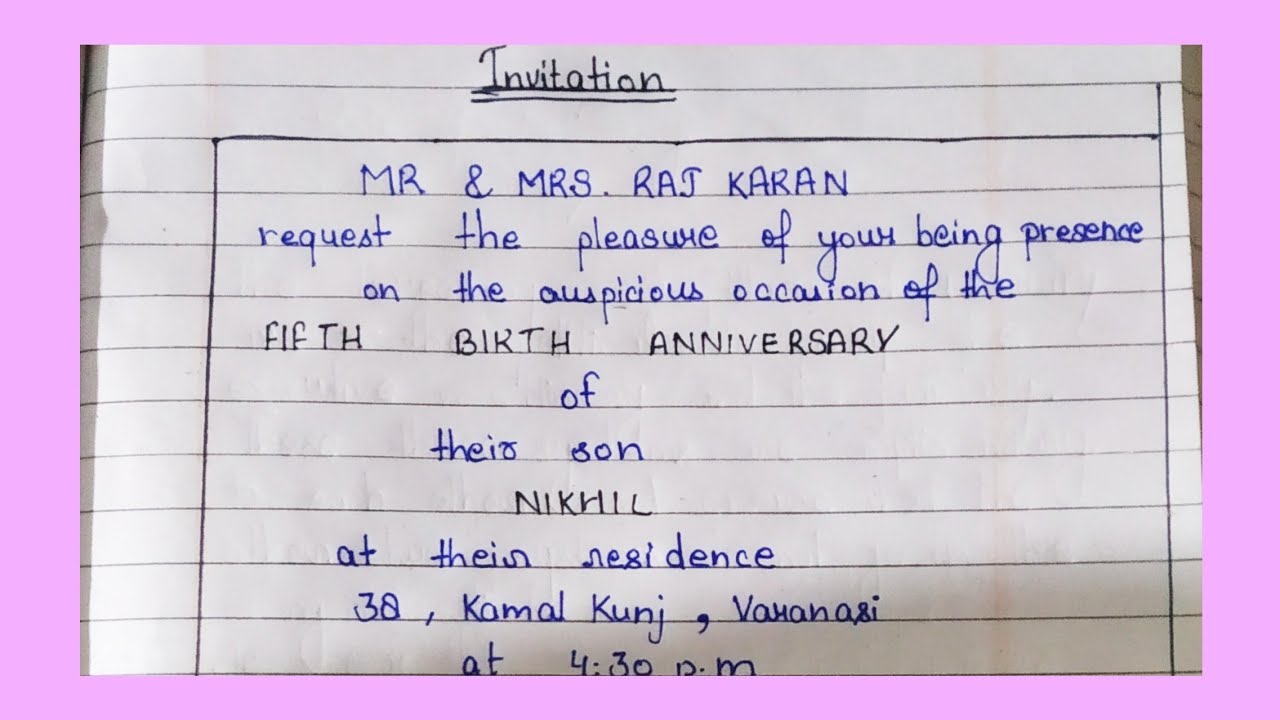 Invitation
MR & MRS. RAJ KARAN
request the pleasure of your being presence
on the auspicious occasion of the
FIFTH BIRTH ANNIVERSARY
of
their son
NIKHIL
at their residence
38, Kamal Kunj, Varanasi
at 4:30 p.m